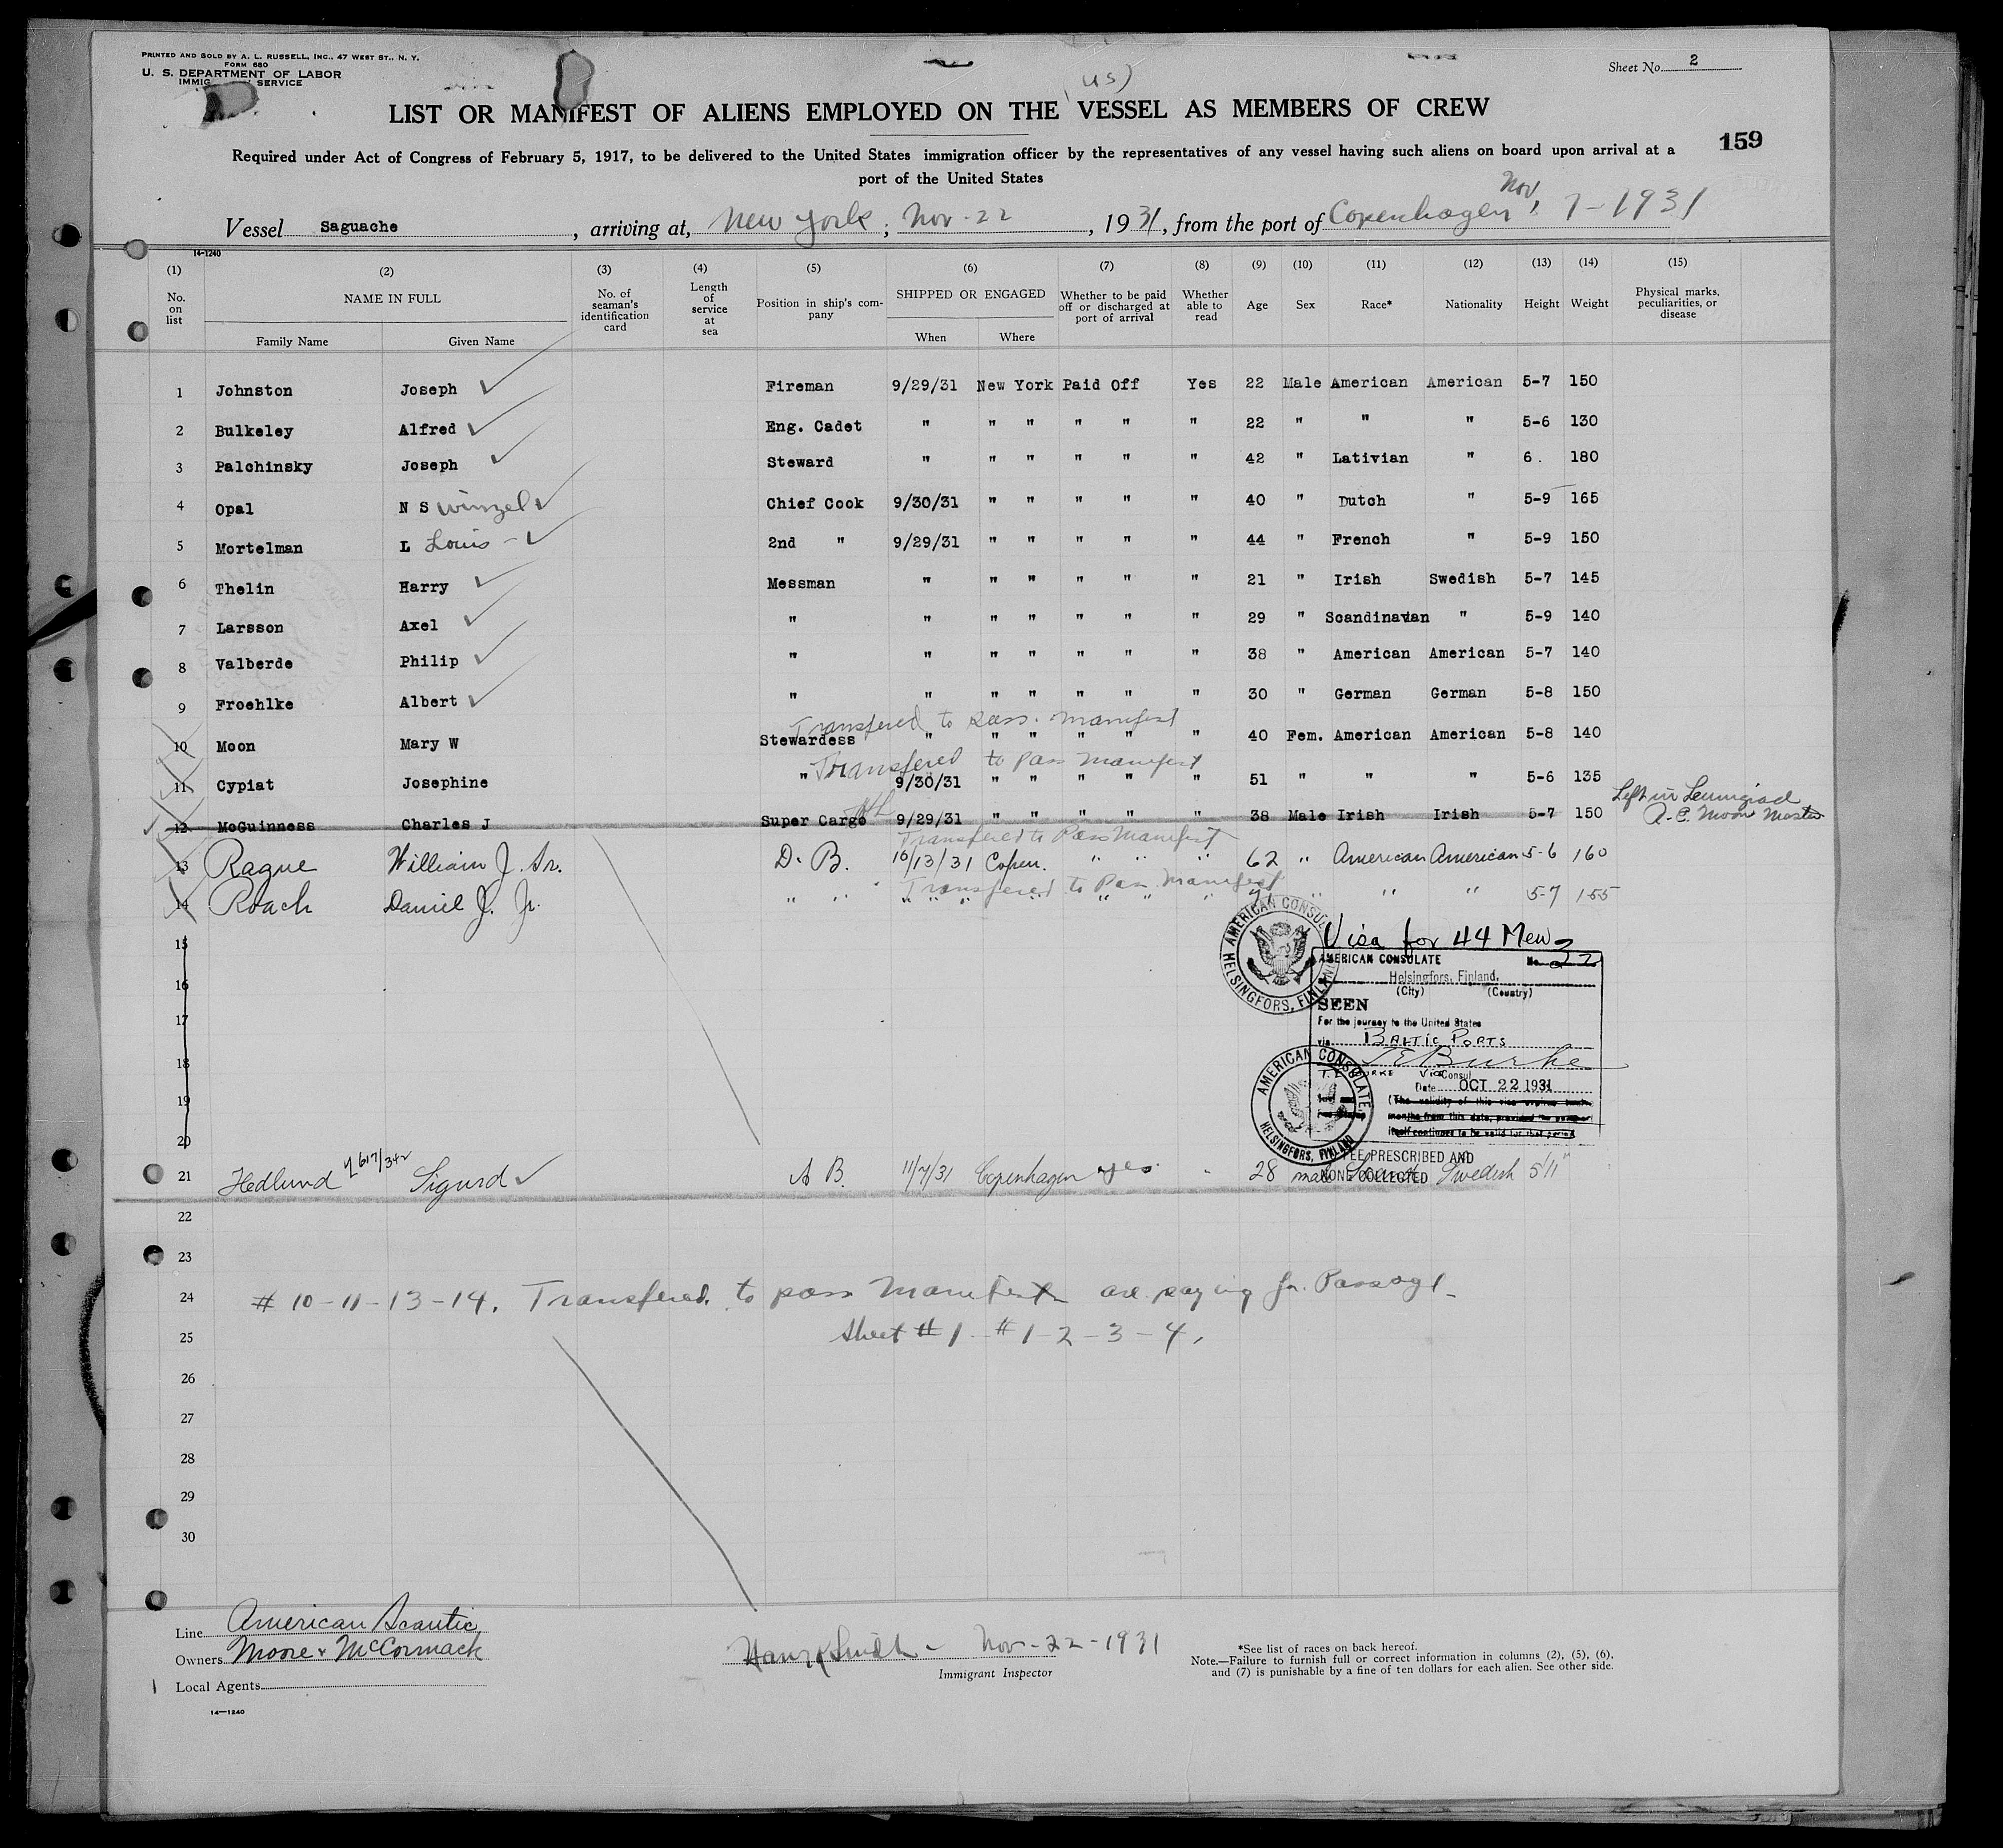 PRINTED AND SOLD BY A. L. RUSSELL, INC., 47 WEST ST., N. Y.
FORM 680
U. S. DEPARTMENT OF LABOR
IMMIG SERVICE
Sheet No. 2
(US)
LIST OR MANIFEST OF ALIENS EMPLOYED ON THE VESSEL AS MEMBERS OF CREW
159
Required under Act of Congress of February 5, 1917, to be delivered to the United States immigration officer by the representatives of any vessel having such aliens on board upon arrival at a
port of the United States
Vessel Saguache, arriving at, New York; Nov-22, 1931, from the port of Copenhagen, Nov 7-1931
14-1240
(1) (2) (3) (4) (5) (6) (7) (8) (9) (10) (11) (12) (13) (14) (15)
No. on list
NAME IN FULL
Family Name Given Name
No. of seaman's identification card
Length of service at sea
Position in ship's company
SHIPPED OR ENGAGED
When Where
Whether to be paid off or discharged at port of arrival
Whether able to read
Age Sex Race* Nationality Height Weight
Physical marks, peculiarities, or disease
1 Johnston Joseph Fireman 9/29/31 New York Paid Off Yes 22 Male American American 5-7 150
2 Bulkeley Alfred Eng. Cadet " " " " " " 22 " " " 5-6 130
3 Palchinsky Joseph Steward " " " " " " 42 " Lativian " 6. 180
4 Opal N S Winzel Chief Cook 9/30/31 " " " " " 40 " Dutch " 5-9 165
5 Mortelman L Louis - 2nd " 9/29/31 " " " " " 44 " French " 5-9 150
6 Thelin Harry Messman " " " " " " 21 " Irish Swedish 5-7 145
7 Larsson Axel " " " " " " " 29 " Scandinavan " 5-9 140
8 Valberde Philip " " " " " " " 38 " American American 5-7 140
9 Froehlke Albert " " " " " " " 30 " German German 5-8 150
Transfered to pass. manifest
10 Moon Mary W Stewardess " " " " " " 40 Fem. American American 5-8 140
Transfered to Pass Manifest
11 Cypiat Josephine " 9/30/31 " " " " " 51 " " " 5-6 135
Left in Leningrad
12 McGuinness Charles J Super Cargo 9/29/31 " " " " " 38 Male Irish Irish 5-7 150 R. C. Moon Master
Transfered to Pass Manifest
13 Rague William J. Sr. D. B. 10/13/31 Copen. " " " 62 " American American 5-6 160
Transfered to Pass Manifest
14 Roach Daniel J. Jr. " " " " " " " " " " " 5-7 155
15
16
17
18
19
20
Visa for 44 Men
AMERICAN CONSULATE No. 22
Helsingfors, Finland.
(City) (Country)
SEEN
For the journey to the United States
via BALTIC PORTS
T E Burke
Vice Consul
Date OCT 22 1931
(The validity of this visa expires
months from this date, provided the passport
itself continues to be valid for that period
FEE PRESCRIBED AND
NONE COLLECTED
AMERICAN CONSULATE HELSINGFORS, FINLAND
AMERICAN CONSULATE, HELSINGFORS, FINLAND
21 Hedlund Sigurd A B. 11/7/31 Copenhagen yes. 28 male Swedish 5'11"
22
23
24 # 10-11-13-14. Transfered to pass Manifest are paying for Passage
25 Sheet #1 - #1-2-3-4.
26
27
28
29
30
Line American Scantic
Owners Moore & McCormack
Local Agents
14-1240
Smith - Nov-22-1931
Immigrant Inspector
*See list of races on back hereof.
Note.—Failure to furnish full or correct information in columns (2), (5), (6),
and (7) is punishable by a fine of ten dollars for each alien. See other side.